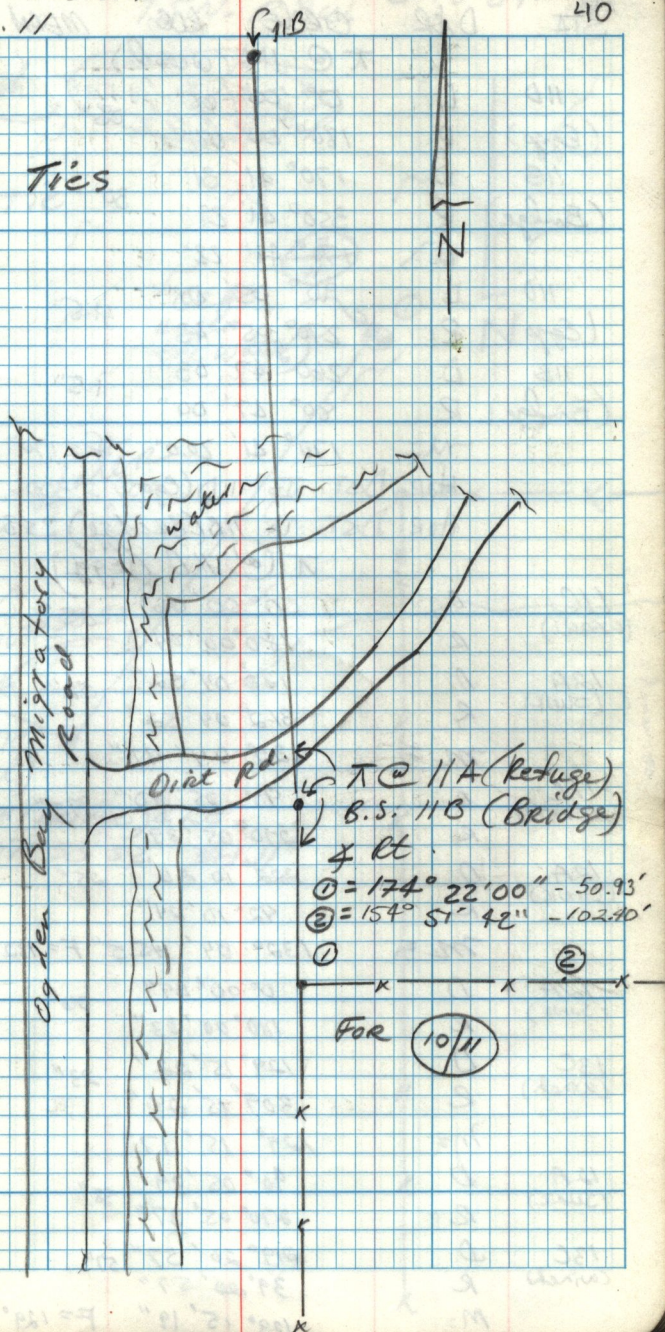 . 11
11B
40
Ties
N
water
Ogden Bay Migratory
Road
Dirt Rd.
⊼ @ 11A (Refuge)
B.S. 11B (Bridge)
∡ Rt.
① = 174° 22' 00" - 50.93'
② = 154° 51' 42" - 102.40'
①
②
For 10/11